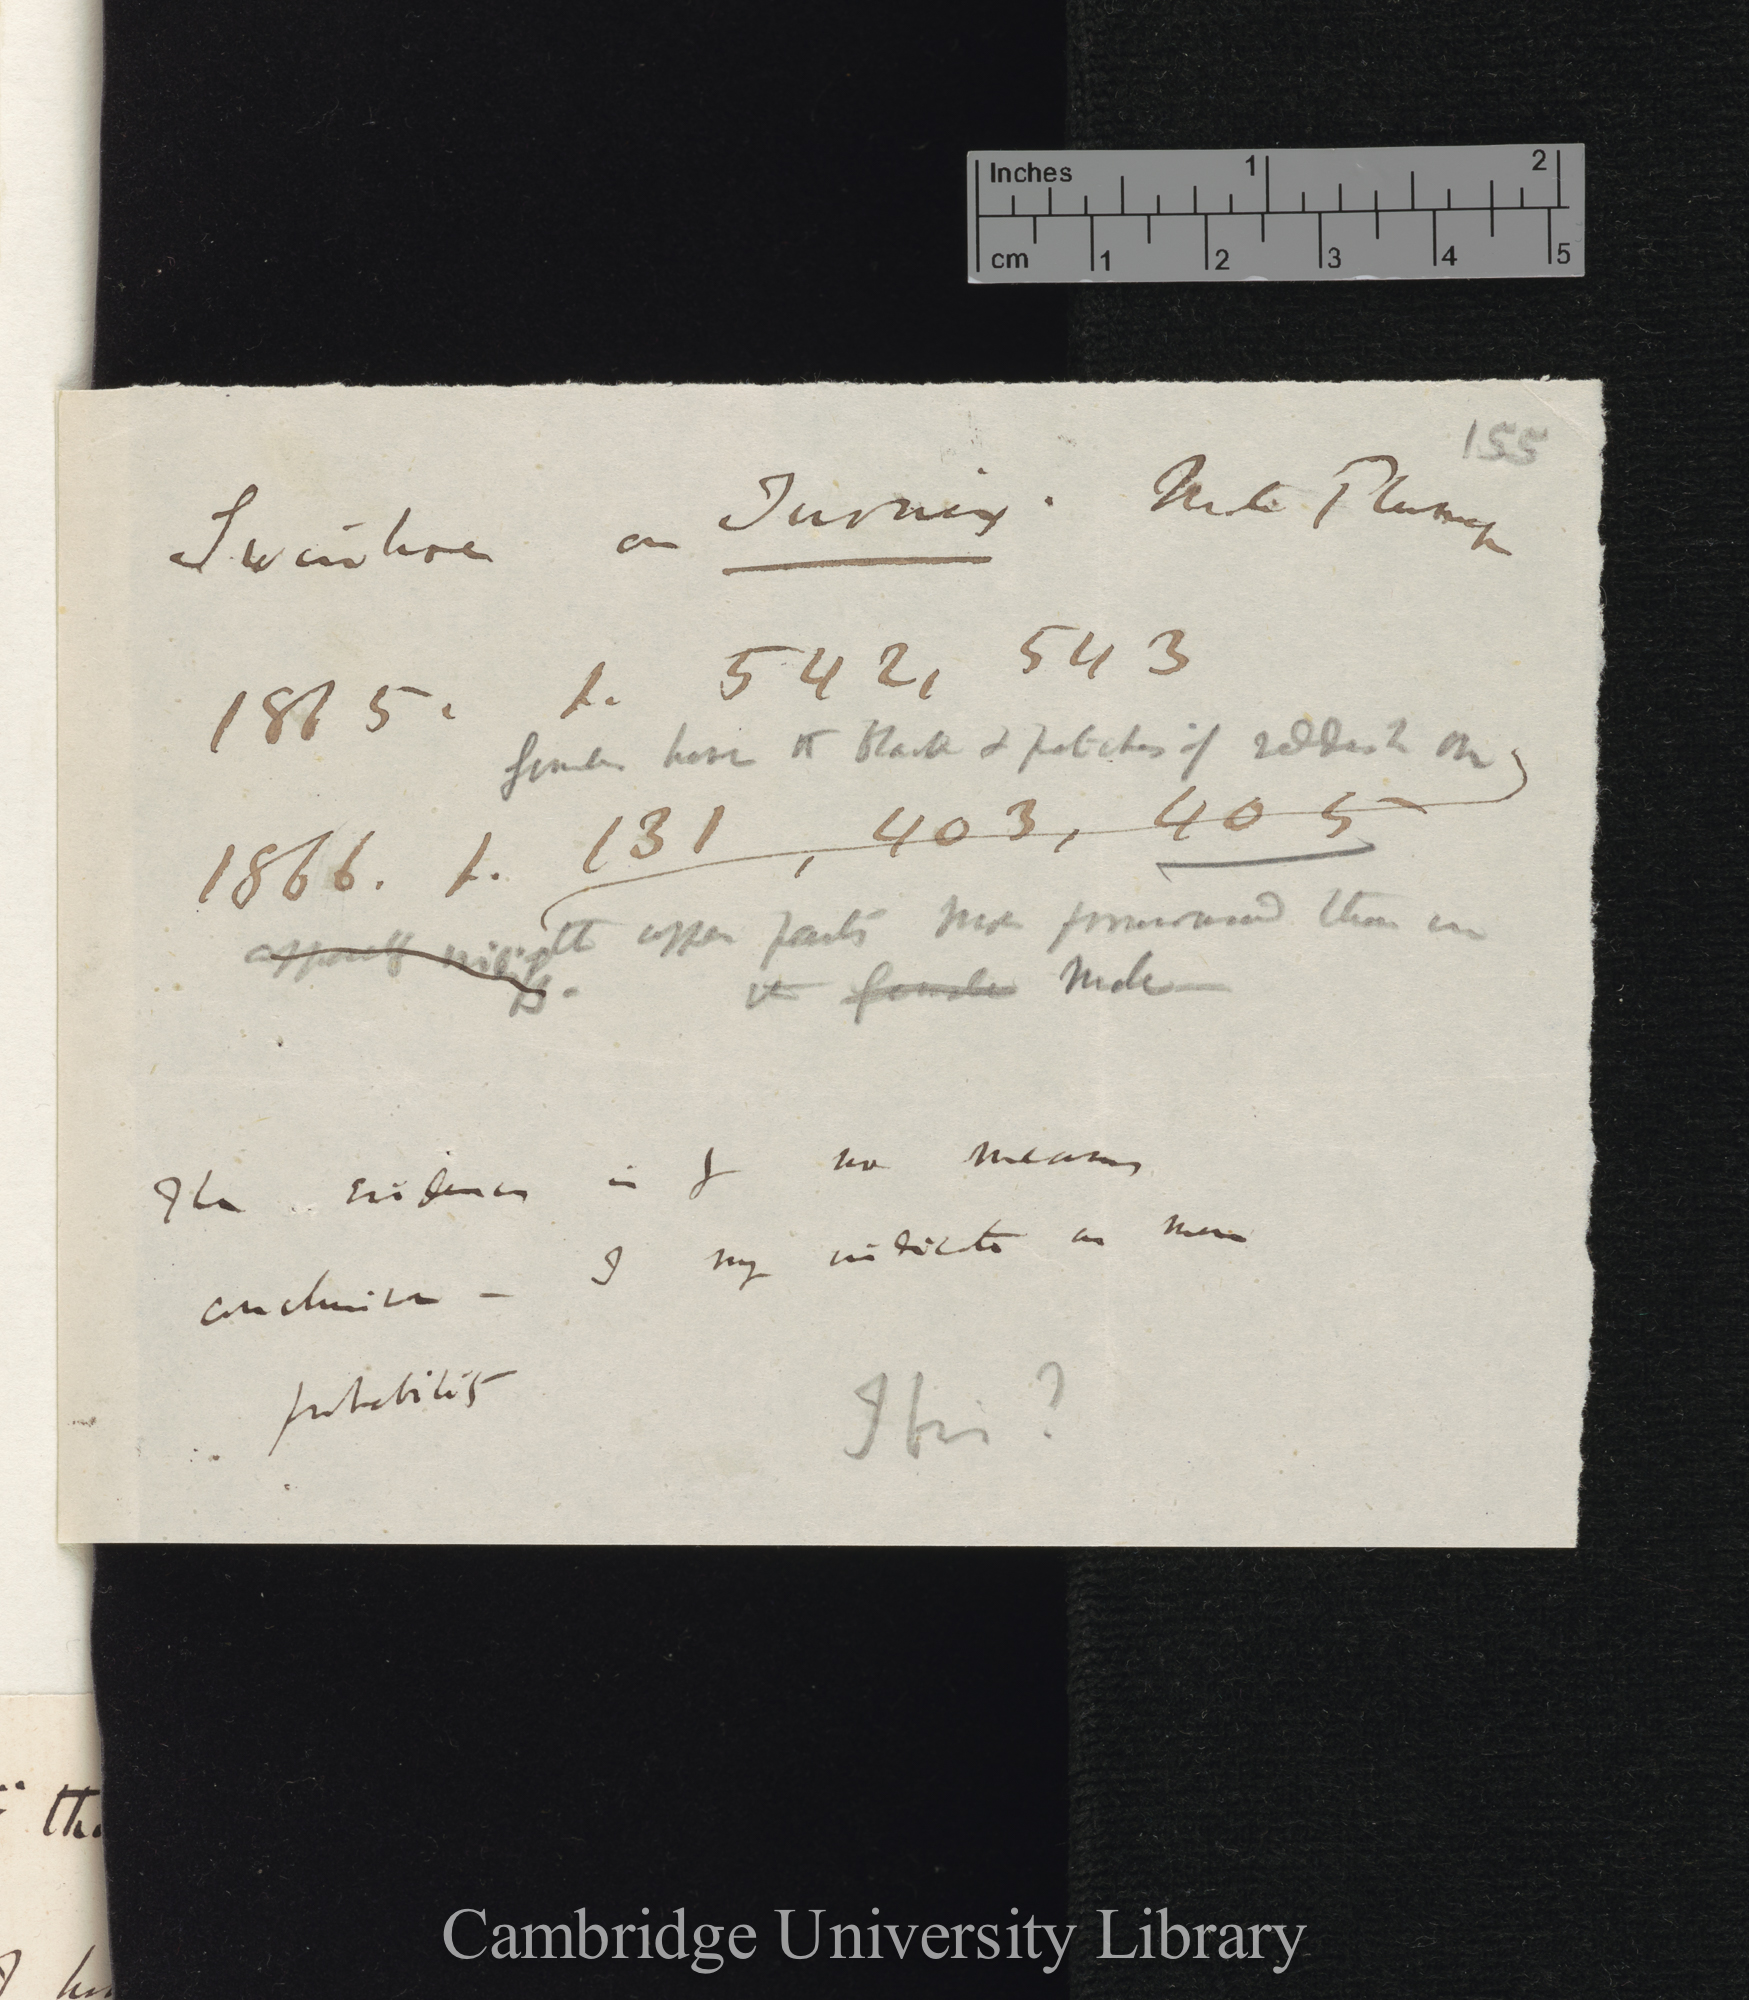 Inches 1 2
cm 1 2 3 4 5
155
Swinhoe on Turnix. Male Plumage
1865. p. 542, 543
females have the black & patches of reddish on
1866. p. 131, 403, 405
the upper parts more pronounced than in
the female Male—
The evidence is by no means
conclusive — I may indicate as mere
probability
Ibis?
Cambridge University Library